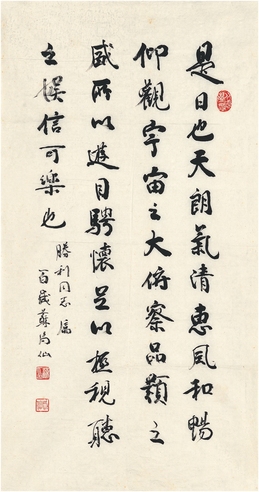 是日也天朗氣清惠風和暢
仰觀宇宙之大俯察品類之
盛所以遊目騁懷足以極視聽
之娛信可樂也
勝利同志屬
百歲蘇局仙